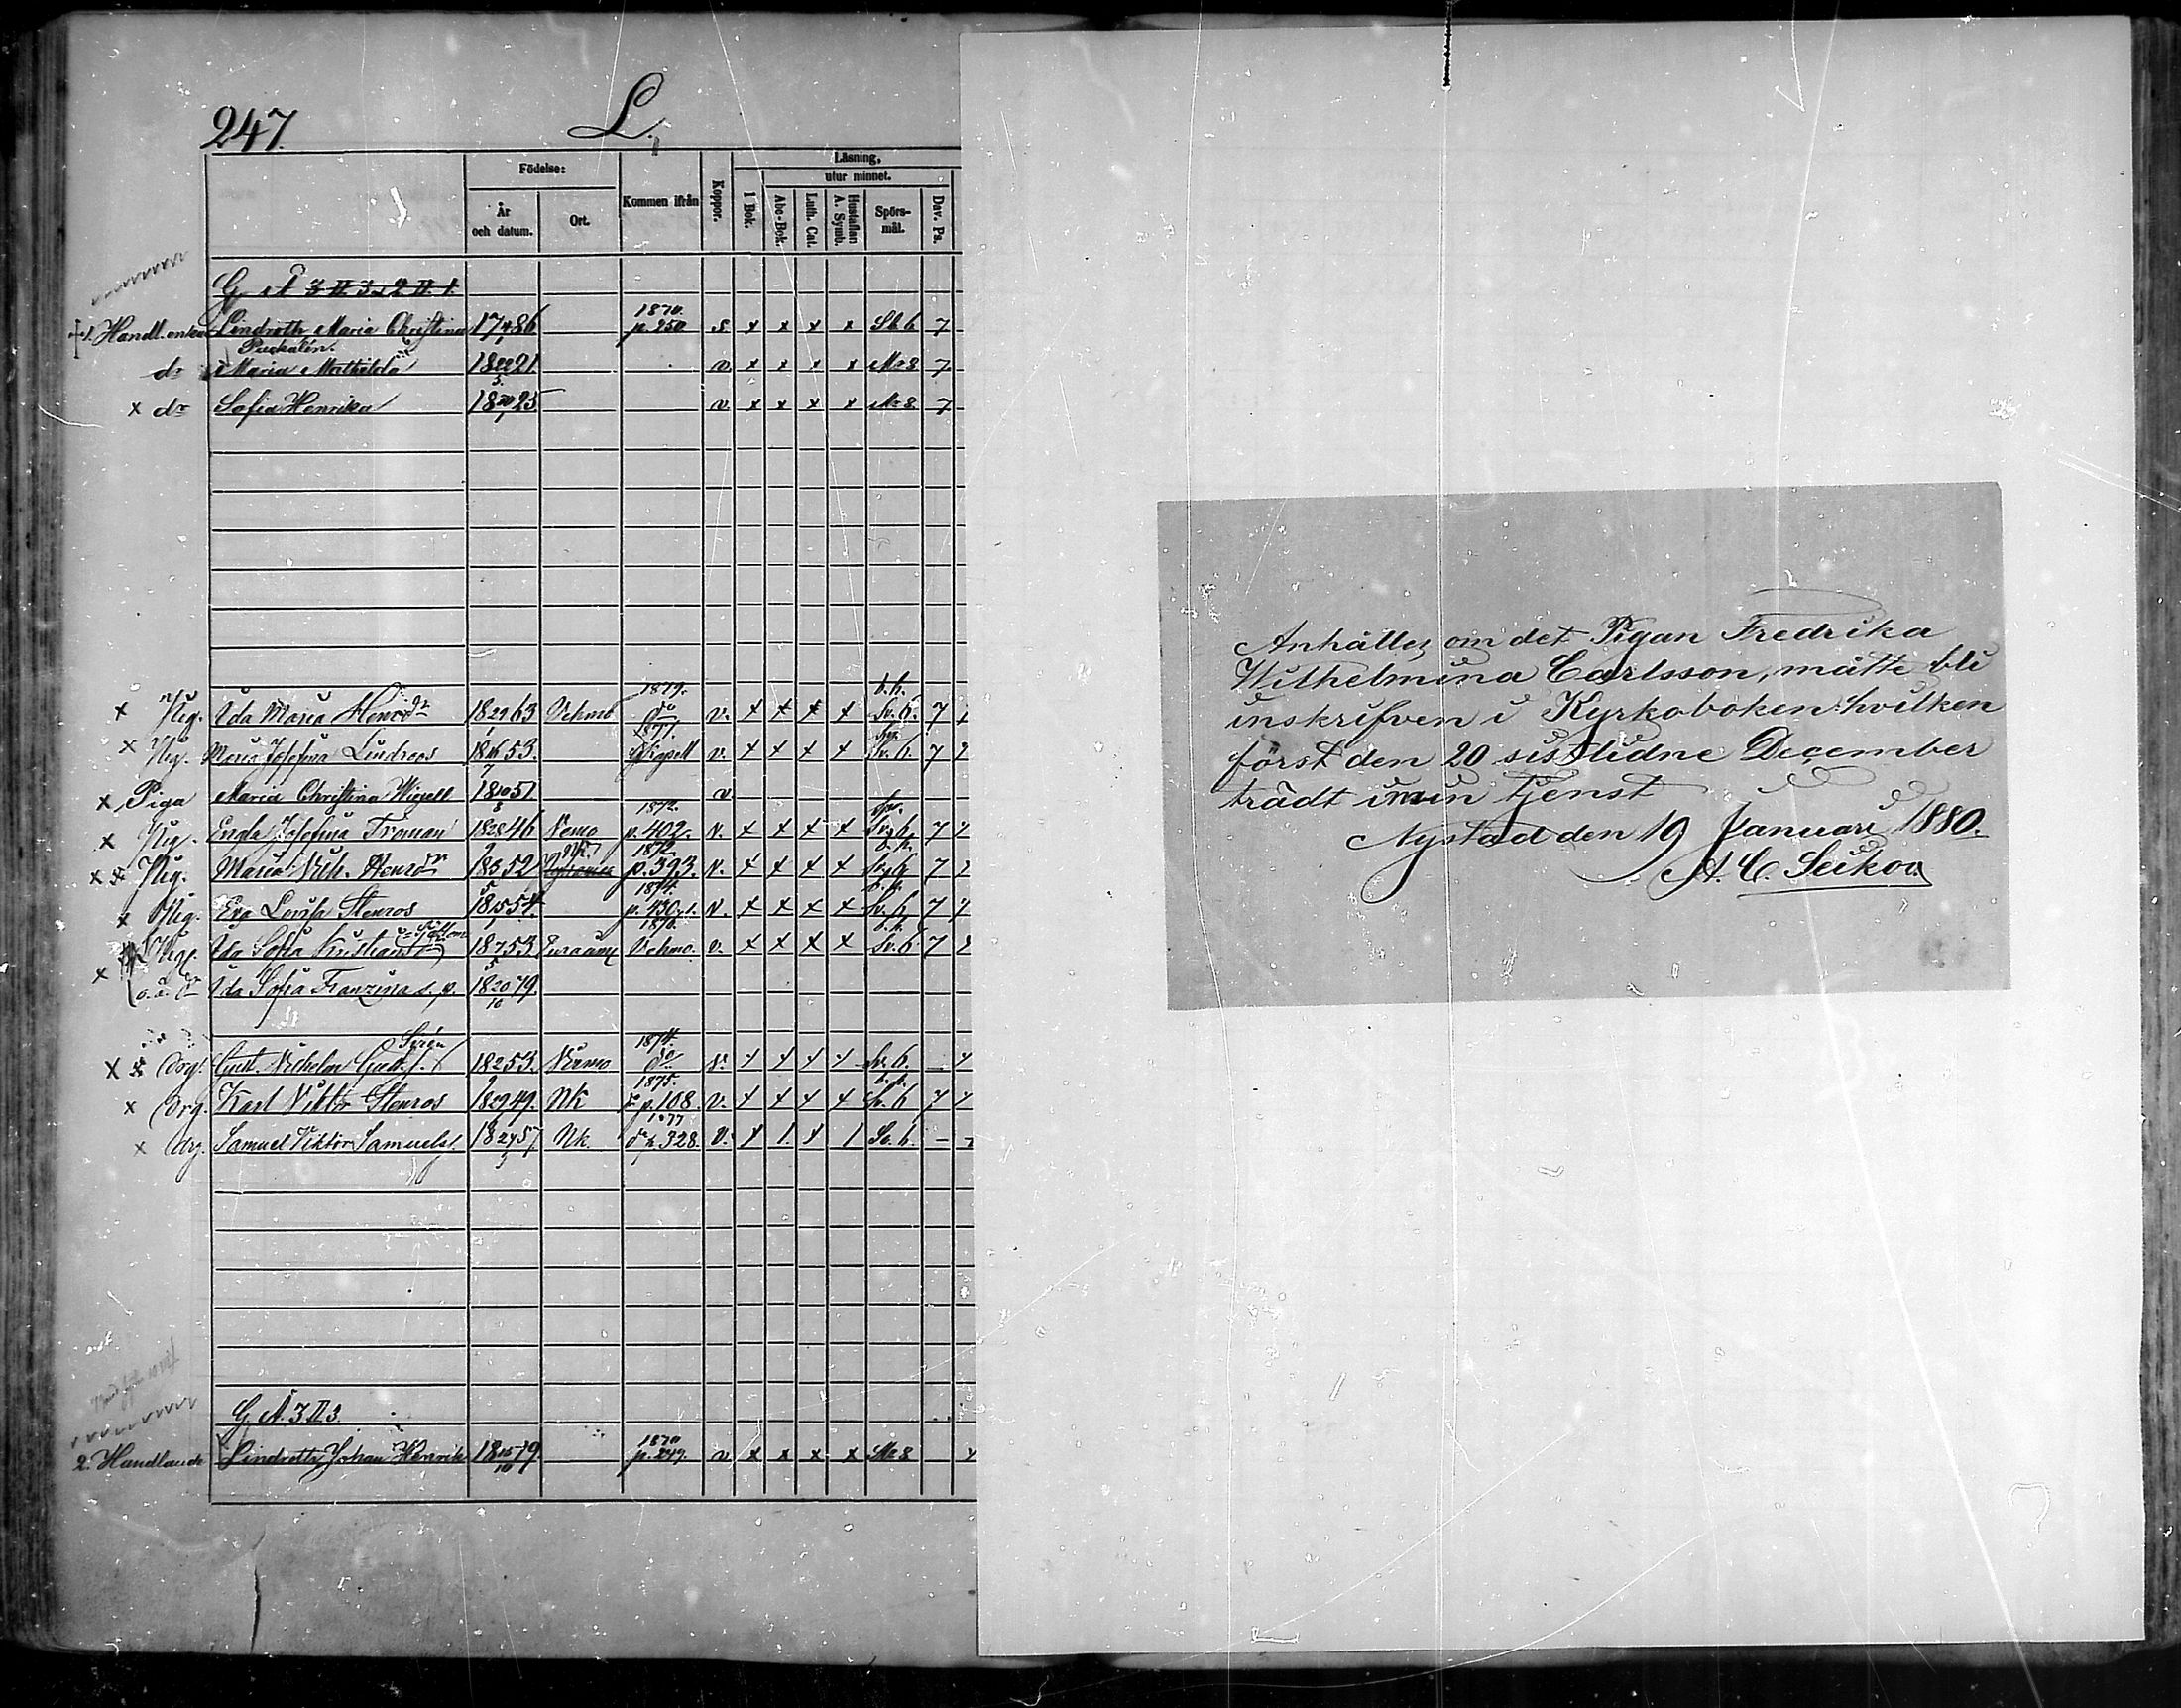 247.
L.
Födelse:
Läsning,
utur minnet.
År och datum.
Ort.
Kommen ifrån
Koppor.
I Bok.
Abc-Bok.
Luth. Cat.
Hustaflan A. Symb.
Spörs-mål.
Dav. Ps.
G. A 3 II 3 2 II 1.
1870.
1. Handl. enka Lindroth Maria Christina 17 4/1 86 p. 250 s x x x x Sk 6 7
Puckalén.
dr Maria Mathilda 18 22/5 21 v x x x x Mr 8 7
x dr Sofia Henrika 18 20/1 25 v. x x x x Mr 8. 7
1879. b. h.
x Pig. Ida Maria Henrdr 18 29/1 63 Vehmo do v. x x x x Sv. 6. 7
1877.
x Pig. Maria Josefina Lindroos 18 16/7 53. v. x x x x Sv. 6. 7
x Piga Maria Christina Widell 18 10/8 51 v
1872.
x Pig. Engla Josefina Froman 18 28/9 46 Nemo p. 402. v. x x x x Sv. 6 7
1872. b. h.
x x Pig. Maria Vilh. Henrdr 18 3/5 52 p. 393. v. x x x x Sv. 6 7
1874. b. h.
x Pig. Eva Lovisa Stenros 18 15/1 54. p. 430 v. x x x x Sv. 6 7
1878. b. h.
Pig. Ida Sofia Kristiansdr 18 7/5 53 Euraåm. Vehmo. v. x x x x Sv. 6 7
x o. ä. dr Ida Sofia Franzina s. p. 18 20/10 79.
Sirén 1874.
x x Drg. Gust. Vilhelm Gust. s. 18 2/9 53. Virmo do v. Sv. 6.
1875. b. h.
x Drg. Karl Viktor Stenros 18 29/9 49. NK p. 168. v. Sv. 6 7
1877
x Drg. Samuel Viktor Samuels. 18 24/3 57 Nk. p. 328. v. Sv. 6. -
G. A. 3. II 3.
1870
2. Handlande Lindroth, Johan Henrik 18 15/10 19 p. 249. v x x x x Mr 8
Anhålles om det Pigan Fredrika
Wilhelmina Carlsson, måtte bli
inskrifven i Kyrkoboken hvilken
först den 20 sistlidne December
trädt i min tjenst
Nystad den 19 Januari 1880.
A. C. Seikov.